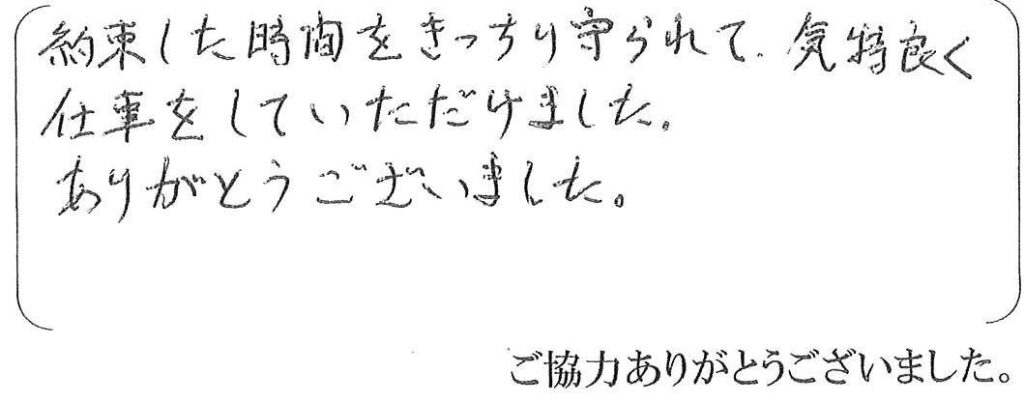 約束した時間をきっちり守られて、気持良く
仕事をしていただけました。
ありがとうございました。
ご協力ありがとうございました。